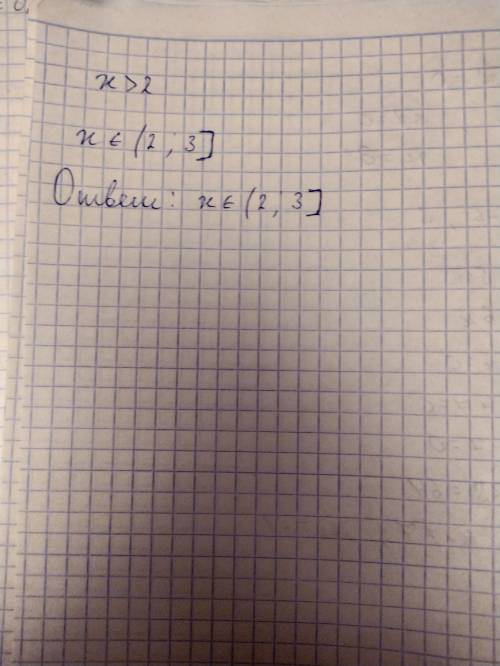 x > 2
x ∈ (2 ; 3]
Ответ: x ∈ (2 ; 3]